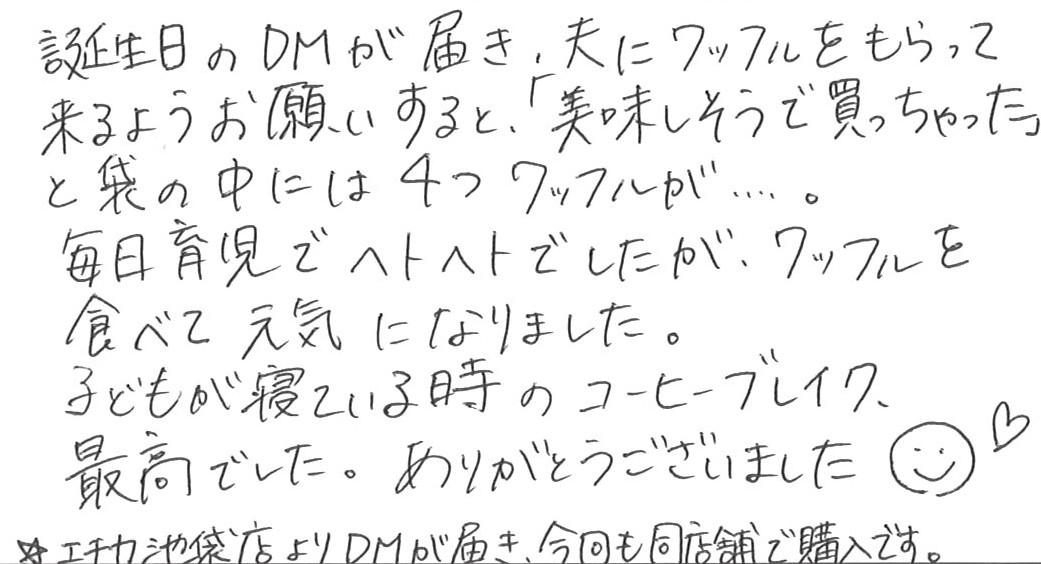 誕生日のDMが届き、夫にワッフルをもらって
来るようお願いすると、「美味しそうで買っちゃった」
と袋の中には4つワッフルが....。
毎日育児でヘトヘトでしたが、ワッフルを
食べて元気になりました。
子どもが寝ている時のコーヒーブレイク、
最高でした。ありがとうございました
☆エチカ池袋店よりDMが届き、今回も同店舗で購入です。